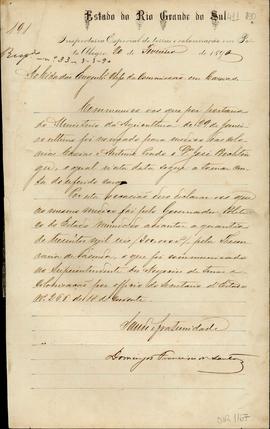 161
Estado do Rio Grande do Sul
Inspectoria Especial de terras e colonisação em Porto
Alegre 20 de Fevereiro de 1890
nº 33
Ao Cidadão Engenheiro Chefe da Commissão em Caxias
Communico vos que por portaria
do Ministerio da Agricultura de 29 de Janeiro
ultimo foi nomeado para medico das colo
nias Caxias e Antonio Prado o Dr José
que, o qual n'esta data segue a tomar conta
do referido cargo
Por esta occasião devo declarar vos que
ao mesmo medico foi pelo Governador
do Estado mandado abonar a quantia
de trezentos mil reis (300$000) pela Thesou
raria de Fazenda, o que foi communicado
ao Superintendente do Serviço de Terras e
Colonisação por officio do Secretario d'Estado
Nº 265 de 18 do corrente.
Saude e fraternidade
Domingos Francisco dos Santos